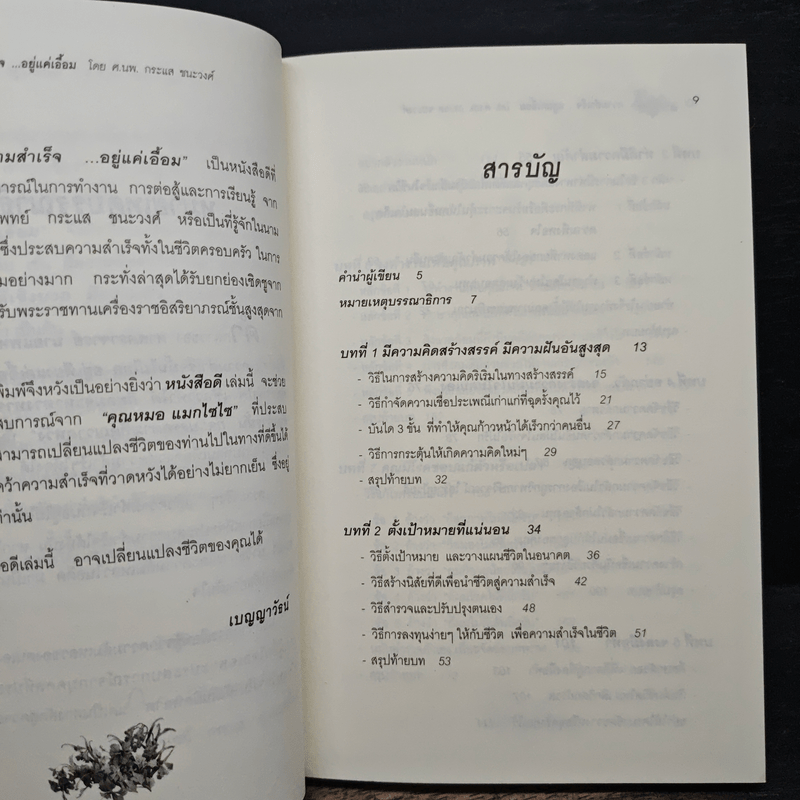 ...อยู่แค่เอื้อม โดย ศ.นพ. กระแส ชนะวงศ์
ามสำเร็จ ...อยู่แค่เอื้อม” เป็นหนังสือดีที่
ารณ์ในการทำงาน การต่อสู้และการเรียนรู้ จาก
พทย์ กระแส ชนะวงศ์ หรือเป็นที่รู้จักในนาม
ซึ่งประสบความสำเร็จทั้งในชีวิตครอบครัว ในการ
มอย่างมาก กระทั่งล่าสุดได้รับยกย่องเชิดชูจาก
รับพระราชทานเครื่องราชอิสริยาภรณ์ชั้นสูงสุดจาก
พิมพ์จึงหวังเป็นอย่างยิ่งว่า หนังสือดี เล่มนี้ จะช่วย
สบการณ์จาก “คุณหมอ แมกไซไซ” ที่ประสบ
ามารถเปลี่ยนแปลงชีวิตของท่านไปในทางที่ดีขึ้นได้
คว้าความสำเร็จที่วาดหวังได้อย่างไม่ยากเย็น ซึ่งอยู่
ท่านั้น
อดีเล่มนี้ อาจเปลี่ยนแปลงชีวิตของคุณได้
เบญญาวัธน์
9
สารบัญ
คำนำผู้เขียน 5
หมายเหตุบรรณาธิการ 7
บทที่ 1 มีความคิดสร้างสรรค์ มีความฝันอันสูงสุด 13
- วิธีในการสร้างความคิดริเริ่มในทางสร้างสรรค์ 15
- วิธีกำจัดความเชื่อประเพณีเก่าแก่ที่ฉุดรั้งคุณไว้ 21
- บันได 3 ขั้น ที่ทำให้คุณก้าวหน้าได้เร็วกว่าคนอื่น 27
- วิธีการกระตุ้นให้เกิดความคิดใหม่ๆ 29
- สรุปท้ายบท 32
บทที่ 2 ตั้งเป้าหมายที่แน่นอน 34
- วิธีตั้งเป้าหมาย และวางแผนชีวิตในอนาคต 36
- วิธีสร้างนิสัยที่ดีเพื่อนำชีวิตสู่ความสำเร็จ 42
- วิธีสำรวจและปรับปรุงตนเอง 48
- วิธีการลงทุนง่ายๆ ให้กับชีวิต เพื่อความสำเร็จในชีวิต 51
- สรุปท้ายบท 53